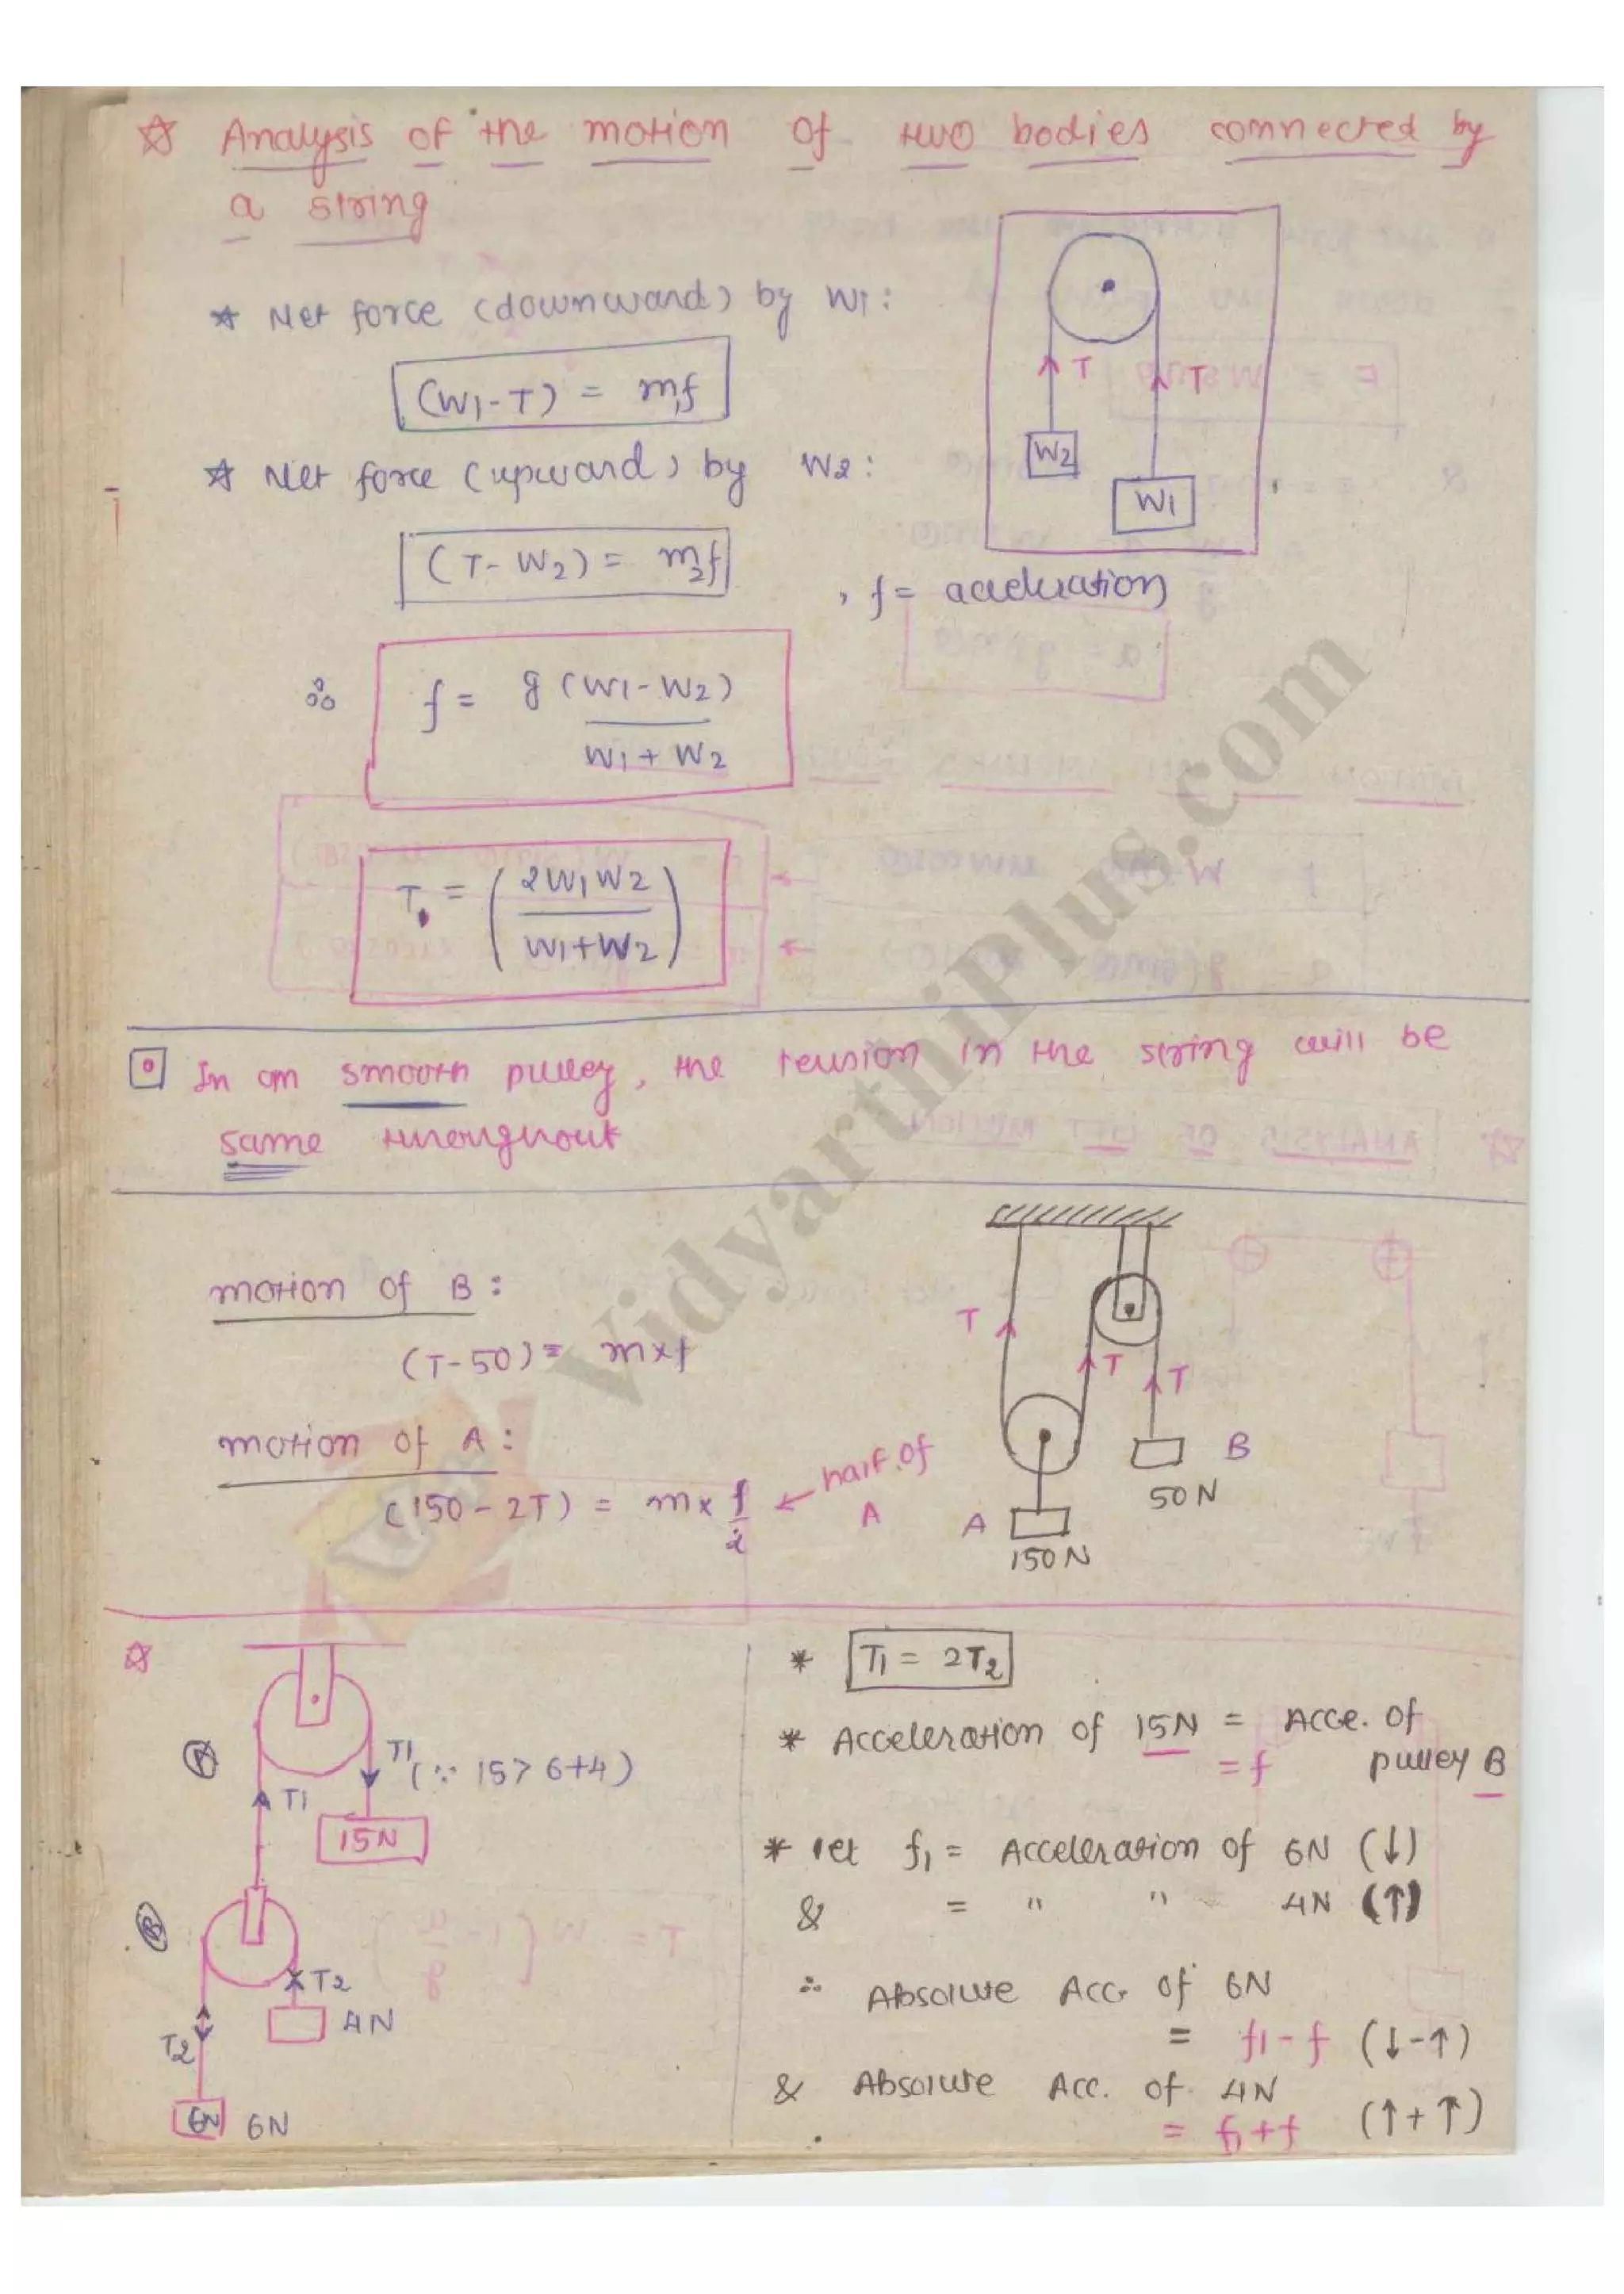 ☆ Analysis of the motion of two bodies connected by
a string
☆ Net force (downward) by W1:
(W1-T) = m1f
☆ Net force (upward) by W2:
(T-W2) = m2f
, f = acceleration
T
T
W2
W1
∴ f = g (W1-W2)
W1 + W2
T = (2W1W2
W1+W2)
In an smooth pulley, the tension in the string will be
same throughout
motion of B:
(T-50) = m×f
motion of A:
(150-2T) = m× f
2
← half of
A
T
T
T
B
50N
A
150N
☆
A
T1 (∵ 15>6+4)
T1
15N
B
T2
4N
T2
6N 6N
* T1 = 2T2
* Acceleration of 15N = Acce. of
= f pulley B
* let f1 = Acceleration of 6N (↓)
& = " " 4N (↑)
∴ Absolute Acc. of 6N
= f1-f (↓-↑)
& Absolute Acc. of 4N
= f1+f (↑+↑)
VidyarthiPlus.com